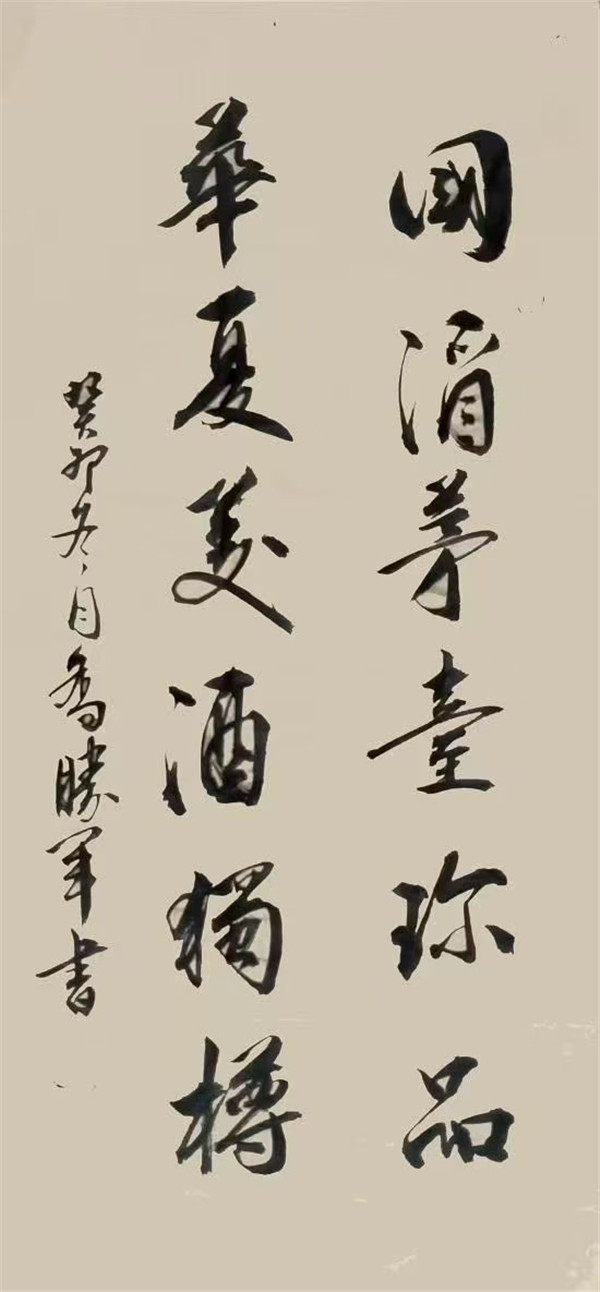 國滔茅臺珎品
華夏美酒獨樽
癸卯冬月喬勝軍書